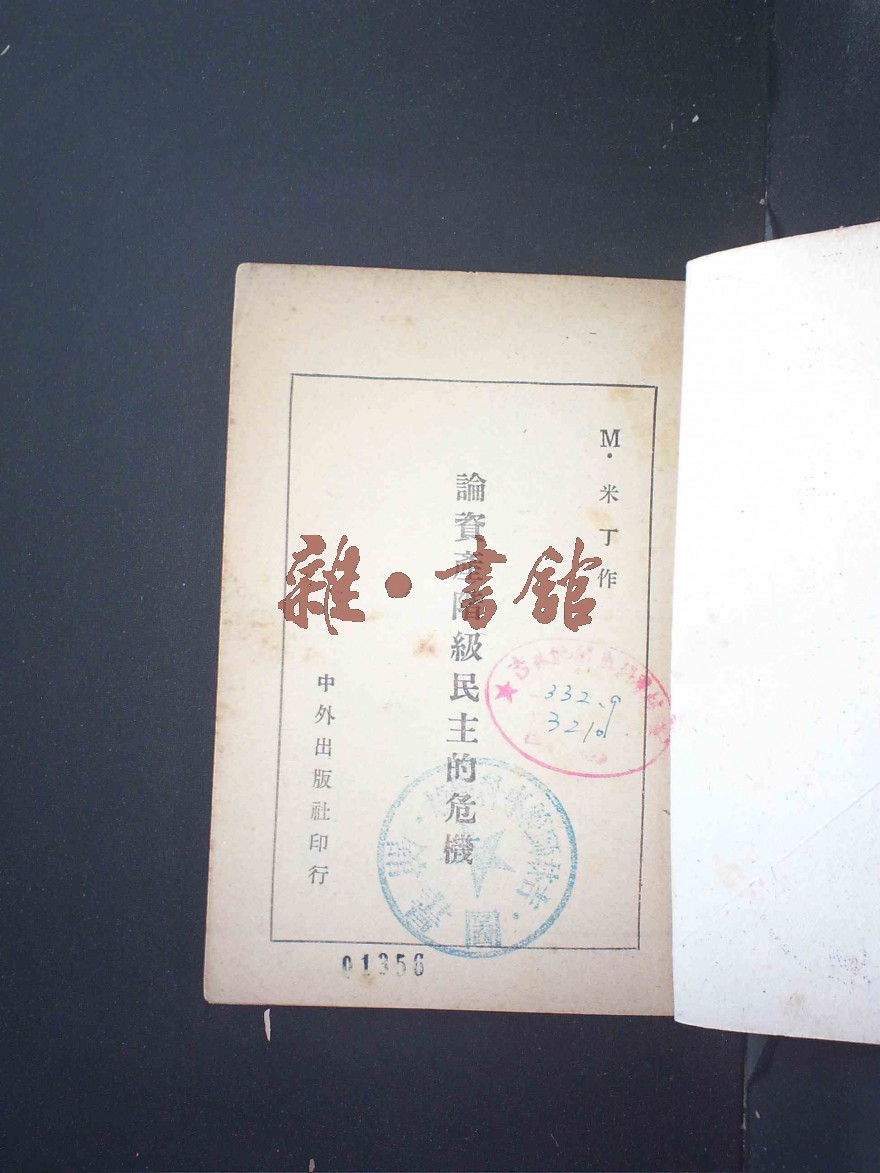 M·米丁作
論資產階級民主的危機
中外出版社印行
雜·書館
332.9
01356